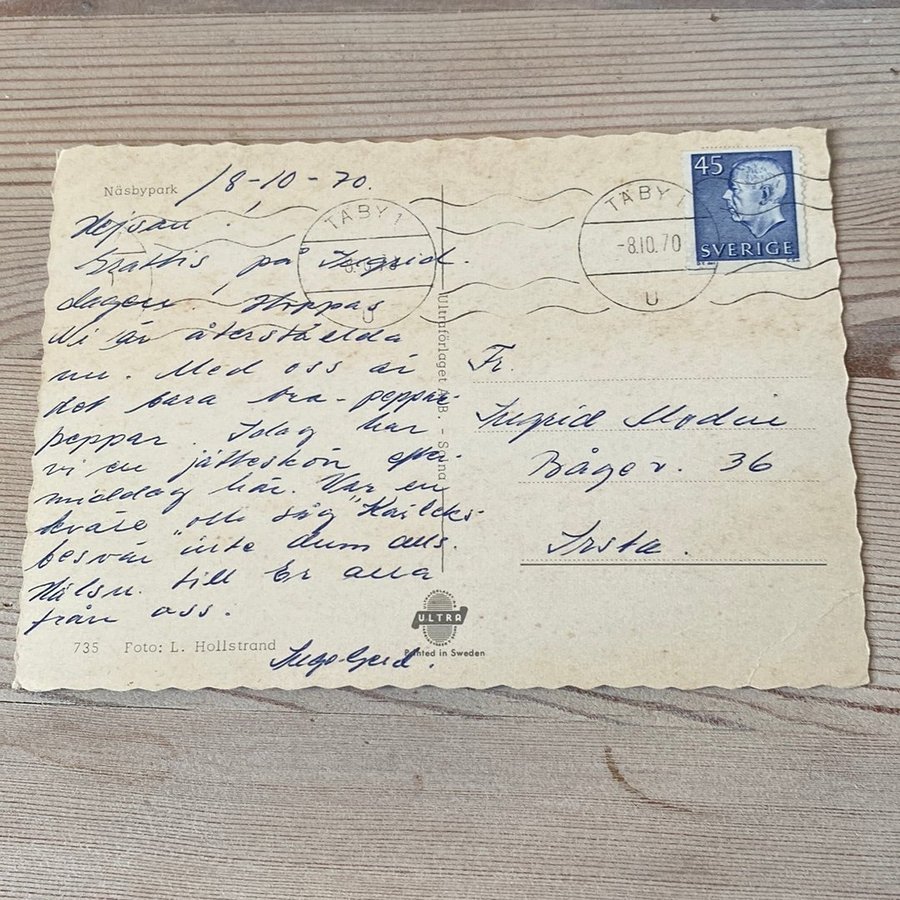 Näsbypark
/8-10-70.
Hejsan!
Grattis på Ingrid
dagen, Hoppas
Ni är återställda
nu. Med oss är
det bara bra-peppar-
peppar. Idag har
vi en jätteskön efter-
middag här. Var en
kväll o såg "Kärleks-
besvär" inte dum alls.
Hälsn. till Er alla
från oss.
Inga-Gerd.
735 Foto: L. Hollstrand
Ultraförlaget A.B. - Solna
ULTRA
Printed in Sweden
TÄBY 1
U
TÄBY 1
-8.10.70
U
45
SVERIGE
Fr.
Ingrid Modin
Bågev. 36
Irsta.